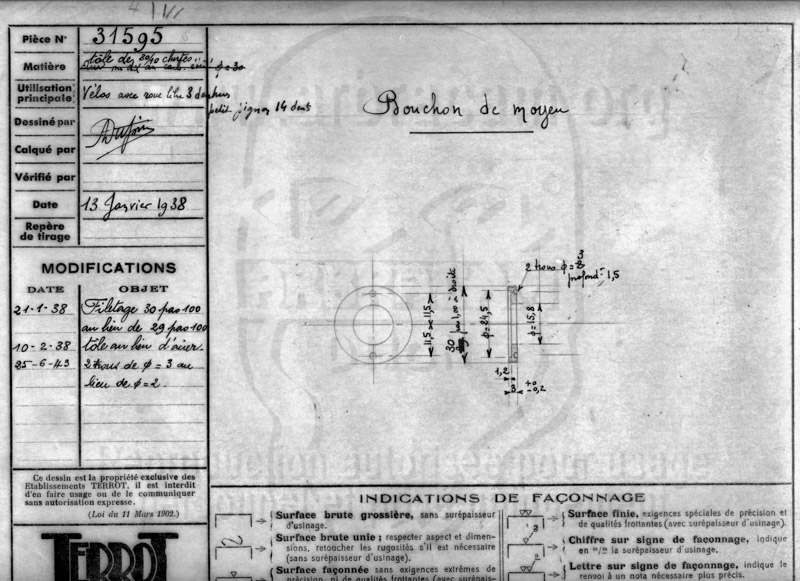 Pièce N° 31595
Matière tôle de 30/10 φ=30
Utilisation principale Vélos avec roue libre 3
petit pignon 14 dents
Dessiné par
Calqué par
Vérifié par
Date 13 Janvier 1938
Repère de tirage
Bouchon de moyeu
MODIFICATIONS
DATE OBJET
21-1-38 Filetage 30 pas 100
au lieu de 29 pas 100
10-2-38 tôle au lieu d'acier
25-6-43 2 trous de φ = 3 au
lieu de φ = 2.
2 trous φ = 3
profond= 1,5
11,5 × 11,5
30 pas 1,00 à droite
φ = 24,5
φ = 15,8
1,2
3 +0 -0,2
Ce dessin est la propriété exclusive des
Etablissements TERROT, il est interdit
d'en faire usage ou de le communiquer
sans autorisation expresse.
(Loi du 11 Mars 1902.)
TERROT
INDICATIONS DE FAÇONNAGE
Surface brute grossière, sans surépaisseur
d'usinage.
Surface brute unie ; respecter aspect et dimen-
sions, retoucher les rugosités s'il est nécessaire
(sans surépaisseur d'usinage).
Surface façonnée sans exigences extrêmes de
précision, ni de qualités frottantes (avec surépais-
Surface finie, exigences spéciales de précision et
de qualités frottantes (avec surépaisseur d'usinage).
Chiffre sur signe de façonnage, indique
en "/" la surépaisseur d'usinage.
Lettre sur signe de façonnage, indique le
renvoi à un nota nécessaire plus précis.